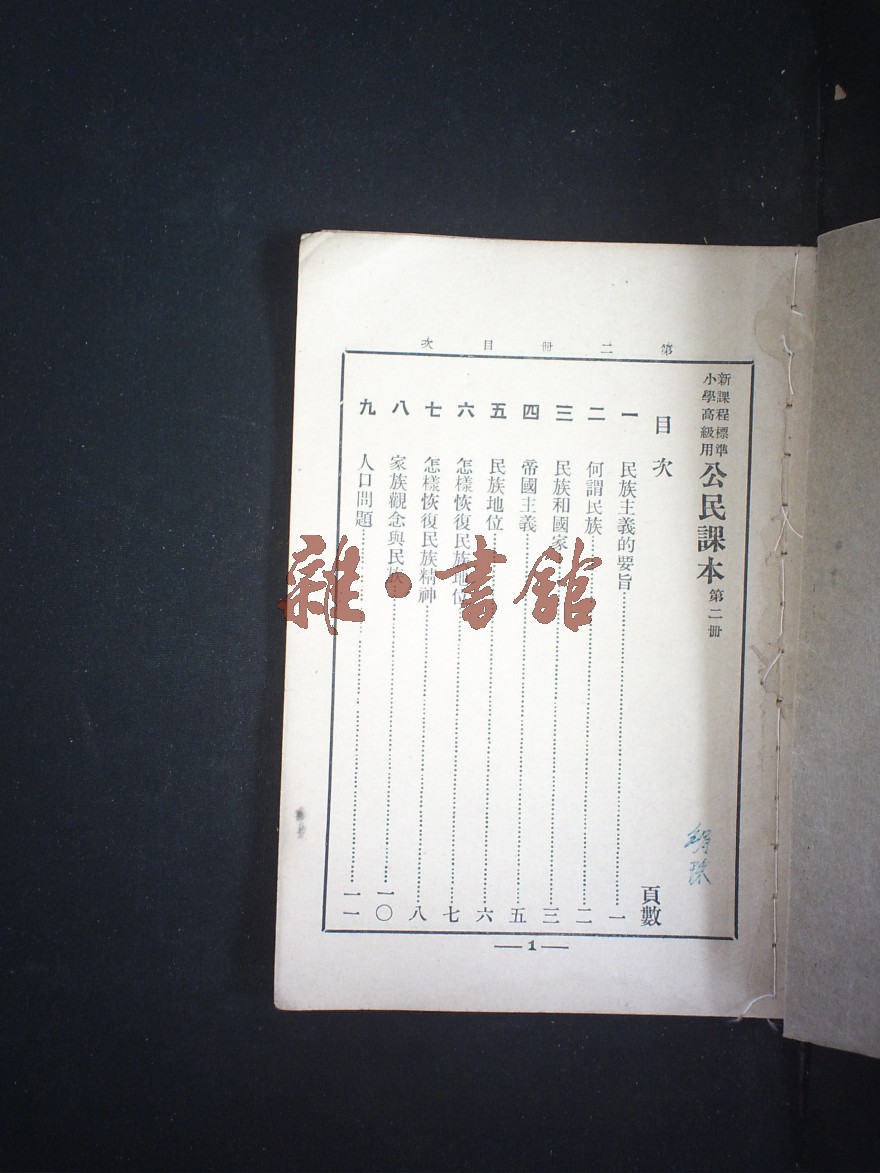 第二冊目次
新課程標準
小學高級用
公民課本 第二冊
目次 頁數
一 民族主義的要旨 一
二 何謂民族 二
三 民族和國家 三
四 帝國主義 五
五 民族地位 六
六 怎樣恢復民族地位 七
七 怎樣恢復民族精神 八
八 家族觀念與民族 一〇
九 人口問題 一一
— 1 —
雜·書館